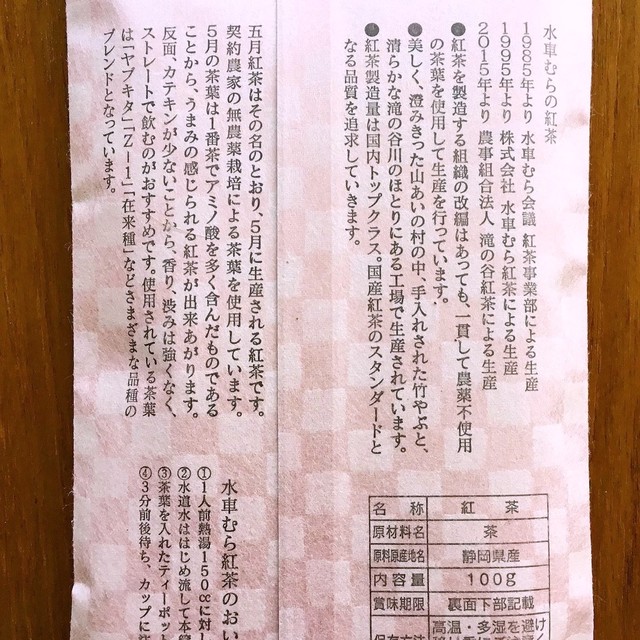 水車むらの紅茶
1985年より 水車むら会議 紅茶事業部による生産
1995年より 株式会社 水車むら紅茶による生産
2015年より 農事組合法人 滝の谷紅茶による生産
●紅茶を製造する組織の改編はあっても、一貫して農薬不使用
の茶葉を使用して生産を行っています。
●美しく、澄みきった山あいの村の中、手入れされた竹やぶと、
清らかな滝の谷川のほとりにある工場で生産されています。
●紅茶製造量は国内トップクラス。国産紅茶のスタンダードと
なる品質を追求していきます。
五月紅茶はその名のとおり、5月に生産される紅茶です。
契約農家の無農薬栽培による茶葉を使用しています。
5月の茶葉は1番茶でアミノ酸を多く含んだものである
ことから、うまみの感じられる紅茶が出来あがります。
反面、カテキンが少ないことから、香り、渋みは強くなく、
ストレートで飲むのがおすすめです。使用されている茶葉
は「ヤブキタ」「Z-1」「在来種」などさまざまな品種の
ブレンドとなっています。
水車むら紅茶のおい
①1人前熱湯150ccに対し
②水道水ははじめ流して本
③茶葉を入れたティーポット
④3分前後待ち、カップに
名称 紅茶
原材料名 茶
原料原産地名 静岡県産
内容量 100g
賞味期限 裏面下部記載
保存方法 高温・多湿を避け